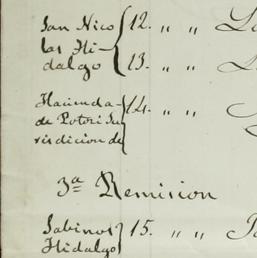 San Nico
las Hi-
dalgo
12. " "
13. " "
Hacienda
de Potosi Ju
risdicion de
14. " "
3ª Remision
Sabinas
Hidalgo
15. " "